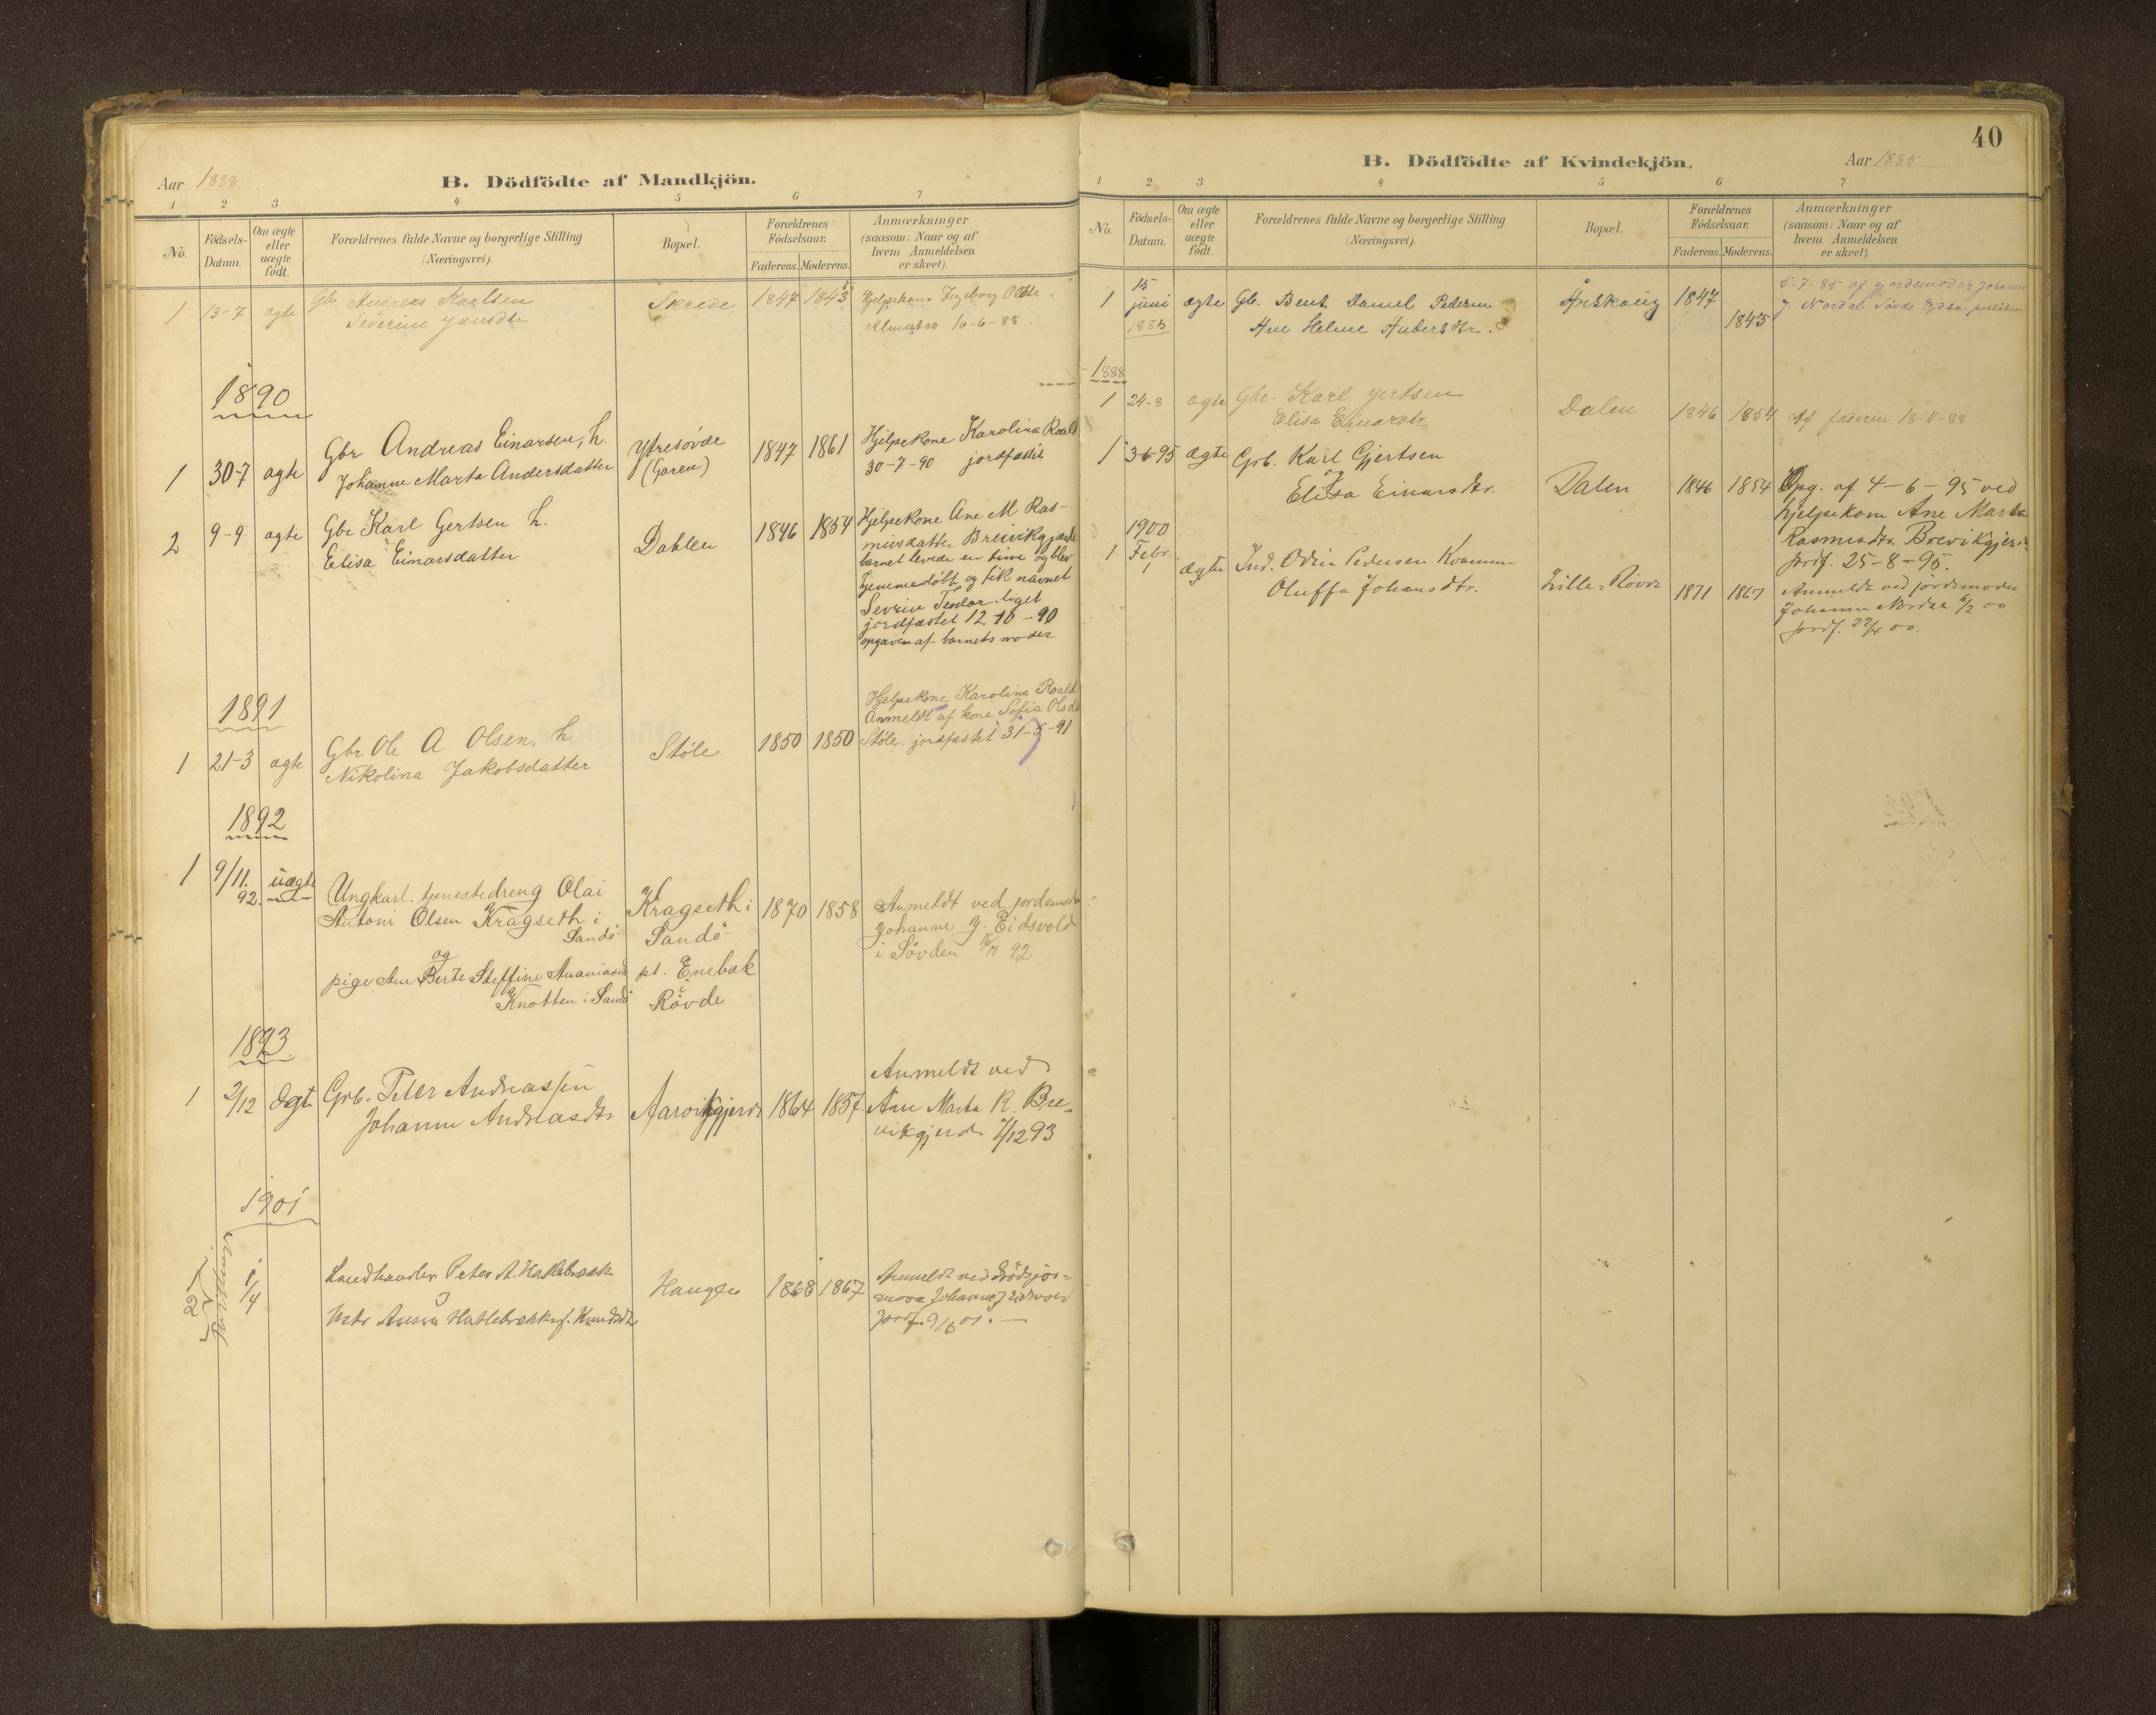 Aar 1888
B. Dödfödte af Mandkjön.
1 2 3 4 5 6 7
No.
Födsels-
Datum.
Om ægte
eller
uægte
födt.
Forældrenes fulde Navne og borgerlige Stilling
(Næringsvei).
Bopæl.
Forældrenes
Födselsaar.
Faderens. Moderens.
Anmærkninger
(saasom: Naar og af
hvem Anmeldelsen
er skeet).
1 13-7 ægte Gbr. Andreas Karlsen
Severine Jensdtr
Skrede 1847 1843
Hjelpekone Ingeborg
16-6-88.
1890
1 30-7 ægte Gbr Andreas Einarsen, h.
Johanne Marta Andersdatter
Ytresövde
(Garen)
1847 1861
Hjelpekone Karolina Roald
30-7-90 jordfæstet
2 9-9 ægte Gbr Karl Gertsen h.
Elisa Einarsdatter
Dahlen 1846 1854
Hjelpekone Ane M Ras-
musdatter Breivikgjærde
barnet levede en time og blev
hjemmedøbt og fik navnet
Severin Teodor. liget
jordfæstet 12-10-90
opgaven af barnets moder
1891
1 21-3 ægte Gbr Ole A Olsen, h
Nikolina Jakobsdatter
Støle 1850 1850
Hjelpekone Karolina Roald
Anmeldt af kone Sofia Olsd
Støle. jordfæstet 31-5-91
1892
1 9/11. 92. uægte
Ungkarl. tjenestedreng Olai
Antoni Olsen Kragseth i
Sandö
og
pige Ane Berte Steffine Ananiasd
Knotten i Sandö
Kragseth i
Sandö
pt. Enebak
i
Rövde
1870 1858
Anmeldt ved jordemoder
Johanne J. Eidsvold
i Sövden 92
1893.
1 2/12 Ægte Grb. Peter Andreassen
Johanne Andreasdtr
Aarvikgjerde 1864 1857.
Anmeldt ved
Ane Marta R. Bre-
vikgjerde 7/12 93
1901
1/4
Landhandler Peter A. Hatlebrekk
og
Hstr Anna Hatlebrekk f. Knudsdtr
Haugen 1868 1867
Anmeldt ved
Johanne J Eidsvold
Jordf. 9/6 01. —
40
B. Dödfödte af Kvindekjön.
Aar 1885
1 2 3 4 5 6 7
No.
Födsels-
Datum.
Om ægte
eller
uægte
födt.
Forældrenes fulde Navne og borgerlige Stilling
(Næringsvei).
Bopæl.
Forældrenes
Födselsaar.
Faderens. Moderens.
Anmærkninger
(saasom: Naar og af
hvem Anmeldelsen
er skeet).
1 15 juni 1885 ægte Gb. Bent Daniel Pedersen
Ane Heline Andersdtr.
Årskoug 1847 1845
5-7-85 af gjordemoder Johanne
J Nordal Sövde
1888
1 24-8 ægte Gbr. Karl Gertsen
Elisa Einarsdtr
Dalen 1846 1854 Af faderen 18-11-88
1 3-6-95 Ægte Grb. Karl Gjertsen
og
Elisa Einarsdtr.
Dalen 1846 1854
Opg. af 4-6-95 ved
hjelpekone Ane Marta
Rasmusdtr. Brevikgjer-
jordf. 25-8-95.
1900
1 Febr. 1 Ægte Ind. Odin Pedersen Kvamme
Oluffa Johansdtr.
Lille-Rövde 1871 1867
Anmeldt ved jordemoder
Johanne Nordal 6/2 00
jordf. 22/4 00.